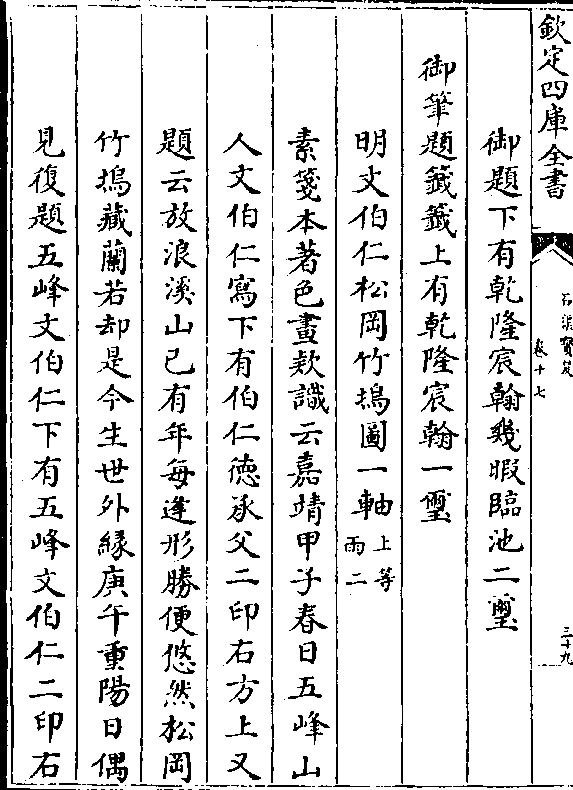 欽定四庫全書
石渠寶笈
卷十七
三十九
御題下有乾隆宸翰幾暇臨池二璽
御筆題籖籖上有乾隆宸翰一璽
明文伯仁松岡竹塢圖一軸上等
雨二
素箋本著色畫欵識云嘉靖甲子春日五峰山
人文伯仁寫下有伯仁德承父二印右方上又
題云放浪溪山已有年每逢形勝便悠然松岡
竹塢藏蘭若却是今生世外緣庚午重陽日偶
見復題五峰文伯仁下有五峰文伯仁二印右